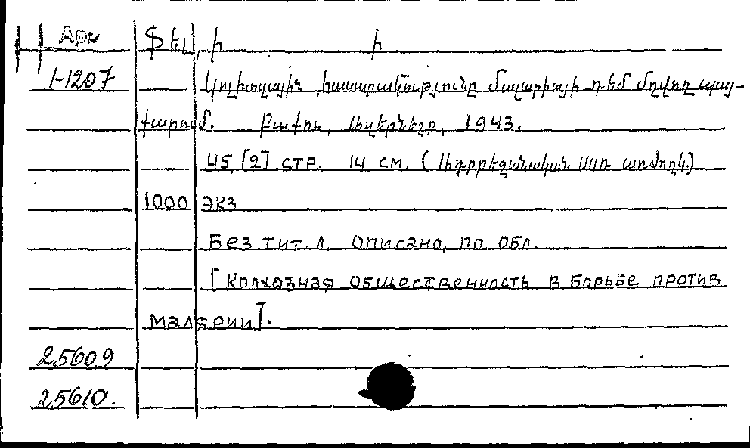 Арм
1-1207 Կոլխոզային հասարակությունը մալարիայի դեմ մղվող պայ-
քարում. Բաքու, Ազերնեշր, 1943.
45 [2] стр. 14 см. (
1000 экз
Без тит. л. Описано, по обл.
[Колхозная общественность в борьбе против
малярии].
25609
25610.